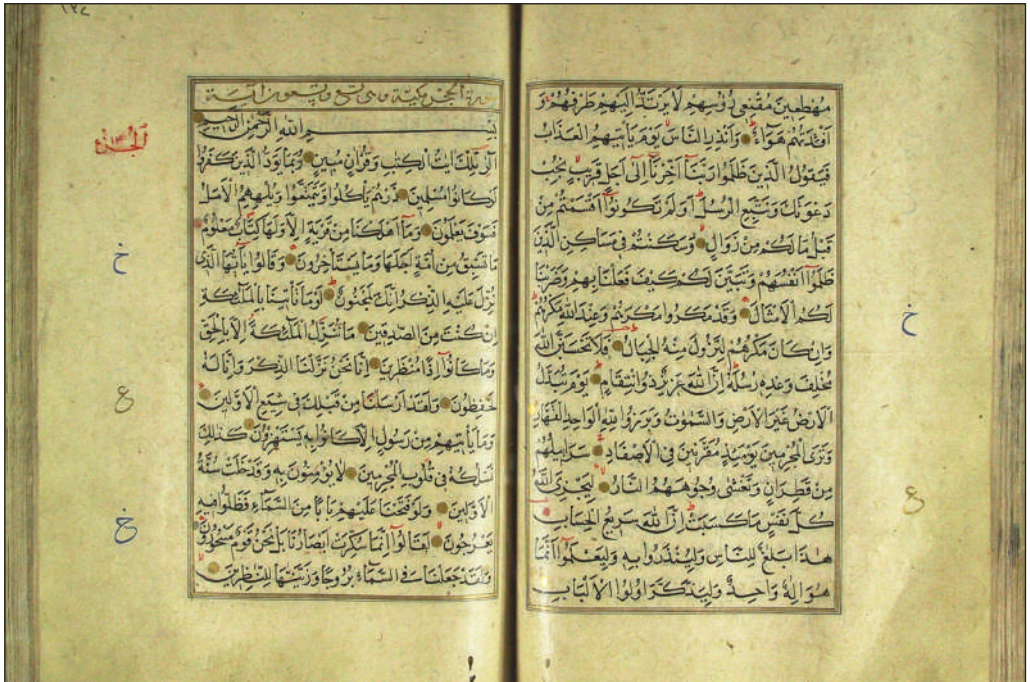 مُهْطِعِينَ مُقْنِعِي رُؤُسِهِمْ لَا يَرْتَدُّ اِلَيْهِمْ طَرْفُهُمْ وَ
اَفْئِدَتُهُمْ هَوَآءٌ وَاَنْذِرِ النَّاسَ يَوْمَ يَأْتِيهِمُ الْعَذَابُ
فَيَقُولُ الَّذِينَ ظَلَمُوا رَبَّنَآ اَخِّرْنَآ اِلٰٓى اَجَلٍ قَرِيبٍ نُجِبْ
دَعْوَتَكَ وَنَتَّبِعِ الرُّسُلَ اَوَلَمْ تَكُونُوٓا اَقْسَمْتُمْ مِنْ
قَبْلُ مَا لَكُمْ مِنْ زَوَالٍ وَسَكَنْتُمْ فِي مَسَاكِنِ الَّذِينَ
ظَلَمُوٓا اَنْفُسَهُمْ وَتَبَيَّنَ لَكُمْ كَيْفَ فَعَلْنَا بِهِمْ وَضَرَبْنَا
لَكُمُ الْاَمْثَالَ وَقَدْ مَكَرُوا مَكْرَهُمْ وَعِنْدَ اللّٰهِ مَكْرُهُمْ
وَاِنْ كَانَ مَكْرُهُمْ لِتَزُولَ مِنْهُ الْجِبَالُ فَلَا تَحْسَبَنَّ اللّٰهَ
مُخْلِفَ وَعْدِهِ رُسُلَهُ اِنَّ اللّٰهَ عَزِيزٌ ذُو انْتِقَامٍ يَوْمَ تُبَدَّلُ
الْاَرْضُ غَيْرَ الْاَرْضِ وَالسَّمٰوٰتُ وَبَرَزُوا لِلّٰهِ الْوَاحِدِ الْقَهَّارِ
وَتَرَى الْمُجْرِمِينَ يَوْمَئِذٍ مُقَرَّنِينَ فِي الْاَصْفَادِ سَرَابِيلُهُمْ
مِنْ قَطِرَانٍ وَتَغْشٰى وُجُوهَهُمُ النَّارُ لِيَجْزِيَ اللّٰهُ
كُلَّ نَفْسٍ مَا كَسَبَتْ اِنَّ اللّٰهَ سَرِيعُ الْحِسَابِ
هٰذَا بَلٰغٌ لِلنَّاسِ وَلِيُنْذَرُوا بِهِ وَلِيَعْلَمُوٓا اَنَّمَا
هُوَ اِلٰهٌ وَاحِدٌ وَلِيَذَّكَّرَ اُولُوا الْاَلْبَابِ
خ
ع
١٢٤
سورة الحجر مكية وهي تسع وتسعون آية
بِسْمِ اللّٰهِ الرَّحْمٰنِ الرَّحِيمِ
الٓرٰ تِلْكَ اٰيَاتُ الْكِتٰبِ وَقُرْاٰنٍ مُبِينٍ رُبَمَا يَوَدُّ الَّذِينَ كَفَرُوا
لَوْ كَانُوا مُسْلِمِينَ ذَرْهُمْ يَأْكُلُوا وَيَتَمَتَّعُوا وَيُلْهِهِمُ الْاَمَلُ
فَسَوْفَ يَعْلَمُونَ وَمَآ اَهْلَكْنَا مِنْ قَرْيَةٍ اِلَّا وَلَهَا كِتَابٌ مَعْلُومٌ
مَا تَسْبِقُ مِنْ اُمَّةٍ اَجَلَهَا وَمَا يَسْتَأْخِرُونَ وَقَالُوا يَآ اَيُّهَا الَّذِي
نُزِّلَ عَلَيْهِ الذِّكْرُ اِنَّكَ لَمَجْنُونٌ لَوْ مَا تَأْتِينَا بِالْمَلٰٓئِكَةِ
اِنْ كُنْتَ مِنَ الصّٰدِقِينَ مَا نُنَزِّلُ الْمَلٰٓئِكَةَ اِلَّا بِالْحَقِّ
وَمَا كَانُوٓا اِذًا مُنْظَرِينَ اِنَّا نَحْنُ نَزَّلْنَا الذِّكْرَ وَاِنَّا لَهُ
لَحٰفِظُونَ وَلَقَدْ اَرْسَلْنَا مِنْ قَبْلِكَ فِي شِيَعِ الْاَوَّلِينَ
وَمَا يَأْتِيهِمْ مِنْ رَسُولٍ اِلَّا كَانُوا بِهِ يَسْتَهْزِؤُنَ كَذٰلِكَ
نَسْلُكُهُ فِي قُلُوبِ الْمُجْرِمِينَ لَا يُؤْمِنُونَ بِهِ وَقَدْ خَلَتْ سُنَّةُ
الْاَوَّلِينَ وَلَوْ فَتَحْنَا عَلَيْهِمْ بَابًا مِنَ السَّمَآءِ فَظَلُّوا فِيهِ
يَعْرُجُونَ لَقَالُوٓا اِنَّمَا سُكِّرَتْ اَبْصَارُنَا بَلْ نَحْنُ قَوْمٌ مَسْحُورُونَ
وَلَقَدْ جَعَلْنَا فِي السَّمَآءِ بُرُوجًا وَزَيَّنّٰهَا لِلنّٰظِرِينَ
الجزء ١٤
خ
ع
خ